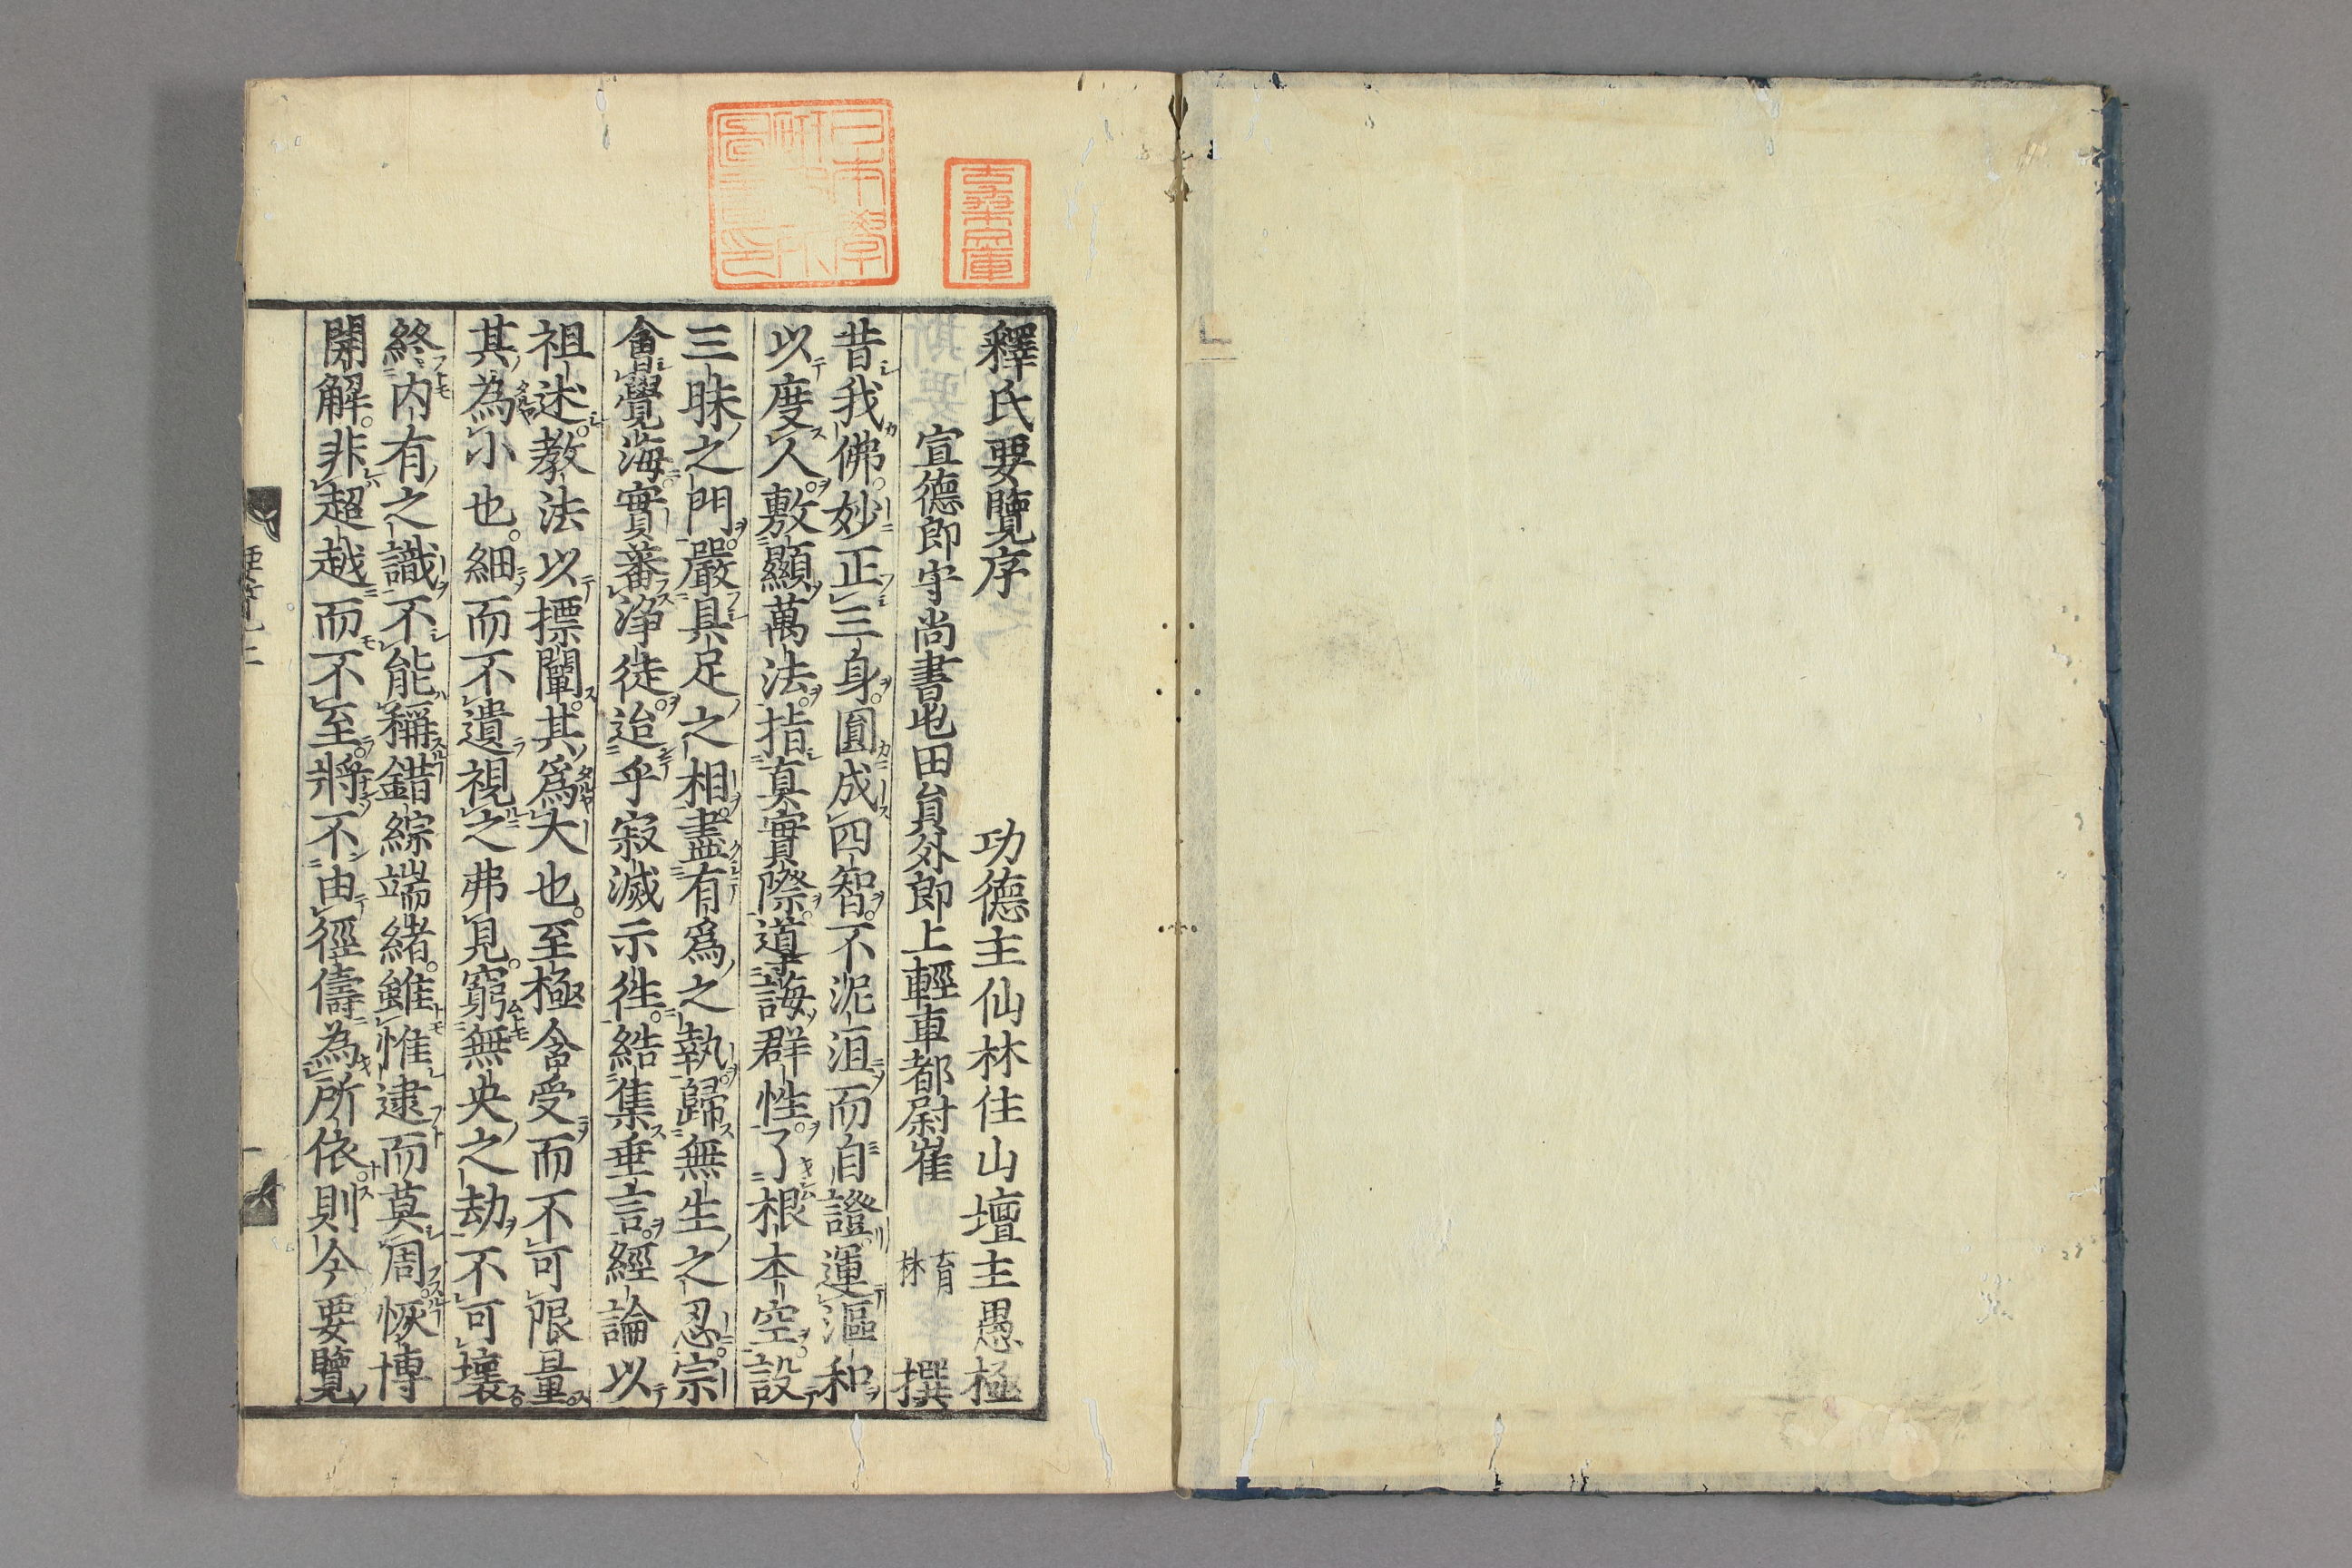 釋氏要覽序 功德主仙林住山壇主愚極
宣德郎守尚書屯田員外郎上輕車都尉崔育林撰
昔我佛妙正三身圓成四智不泥洹而自證運漚和
以度人敷顯萬法指真實際導誨群性了根本空設
三昧之門嚴具足之相盡有爲之執歸無生之忍宗
會覺海實蕃淨徒迨乎寂滅示徃結集垂言經論以
祖述教法以摽闡其爲大也至極含受而不可限量
其為小也細而不遺視之弗見窮無央之劫不可壞
終内有之識不能稱錯綜端緒雖惟逮而莫周恢博
開解非超越而不至將不由徑儔為所依則今要覽